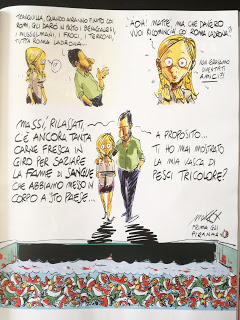 TRANQUILLA, QUANDO AVRANNO FINITO COI
ROM, GLI DARÒ IN PASTO I BENGALESI,
I MUSULMANI, I FROCI, I TERRONI,
TUTTA ROMA LADRONA...
AOH! MATTE', MA CHE DAVERO
VUOI RICOMINCIA' CO ROMA LADRONA?
NON ERAVAMO
DIVENTATI
AMICI?!
MASSÌ, RILASSATI,
C'È ANCORA TANTA
CARNE FRESCA IN
GIRO PER SAZIARE
LA FAME DI SANGUE
CHE ABBIAMO MESSO IN
CORPO A 'STO PAESE...
A PROPOSITO...
TI HO MAI MOSTRATO
LA MIA VASCA DI
PESCI TRICOLORE?
PRIMA GLI
PIRANHA